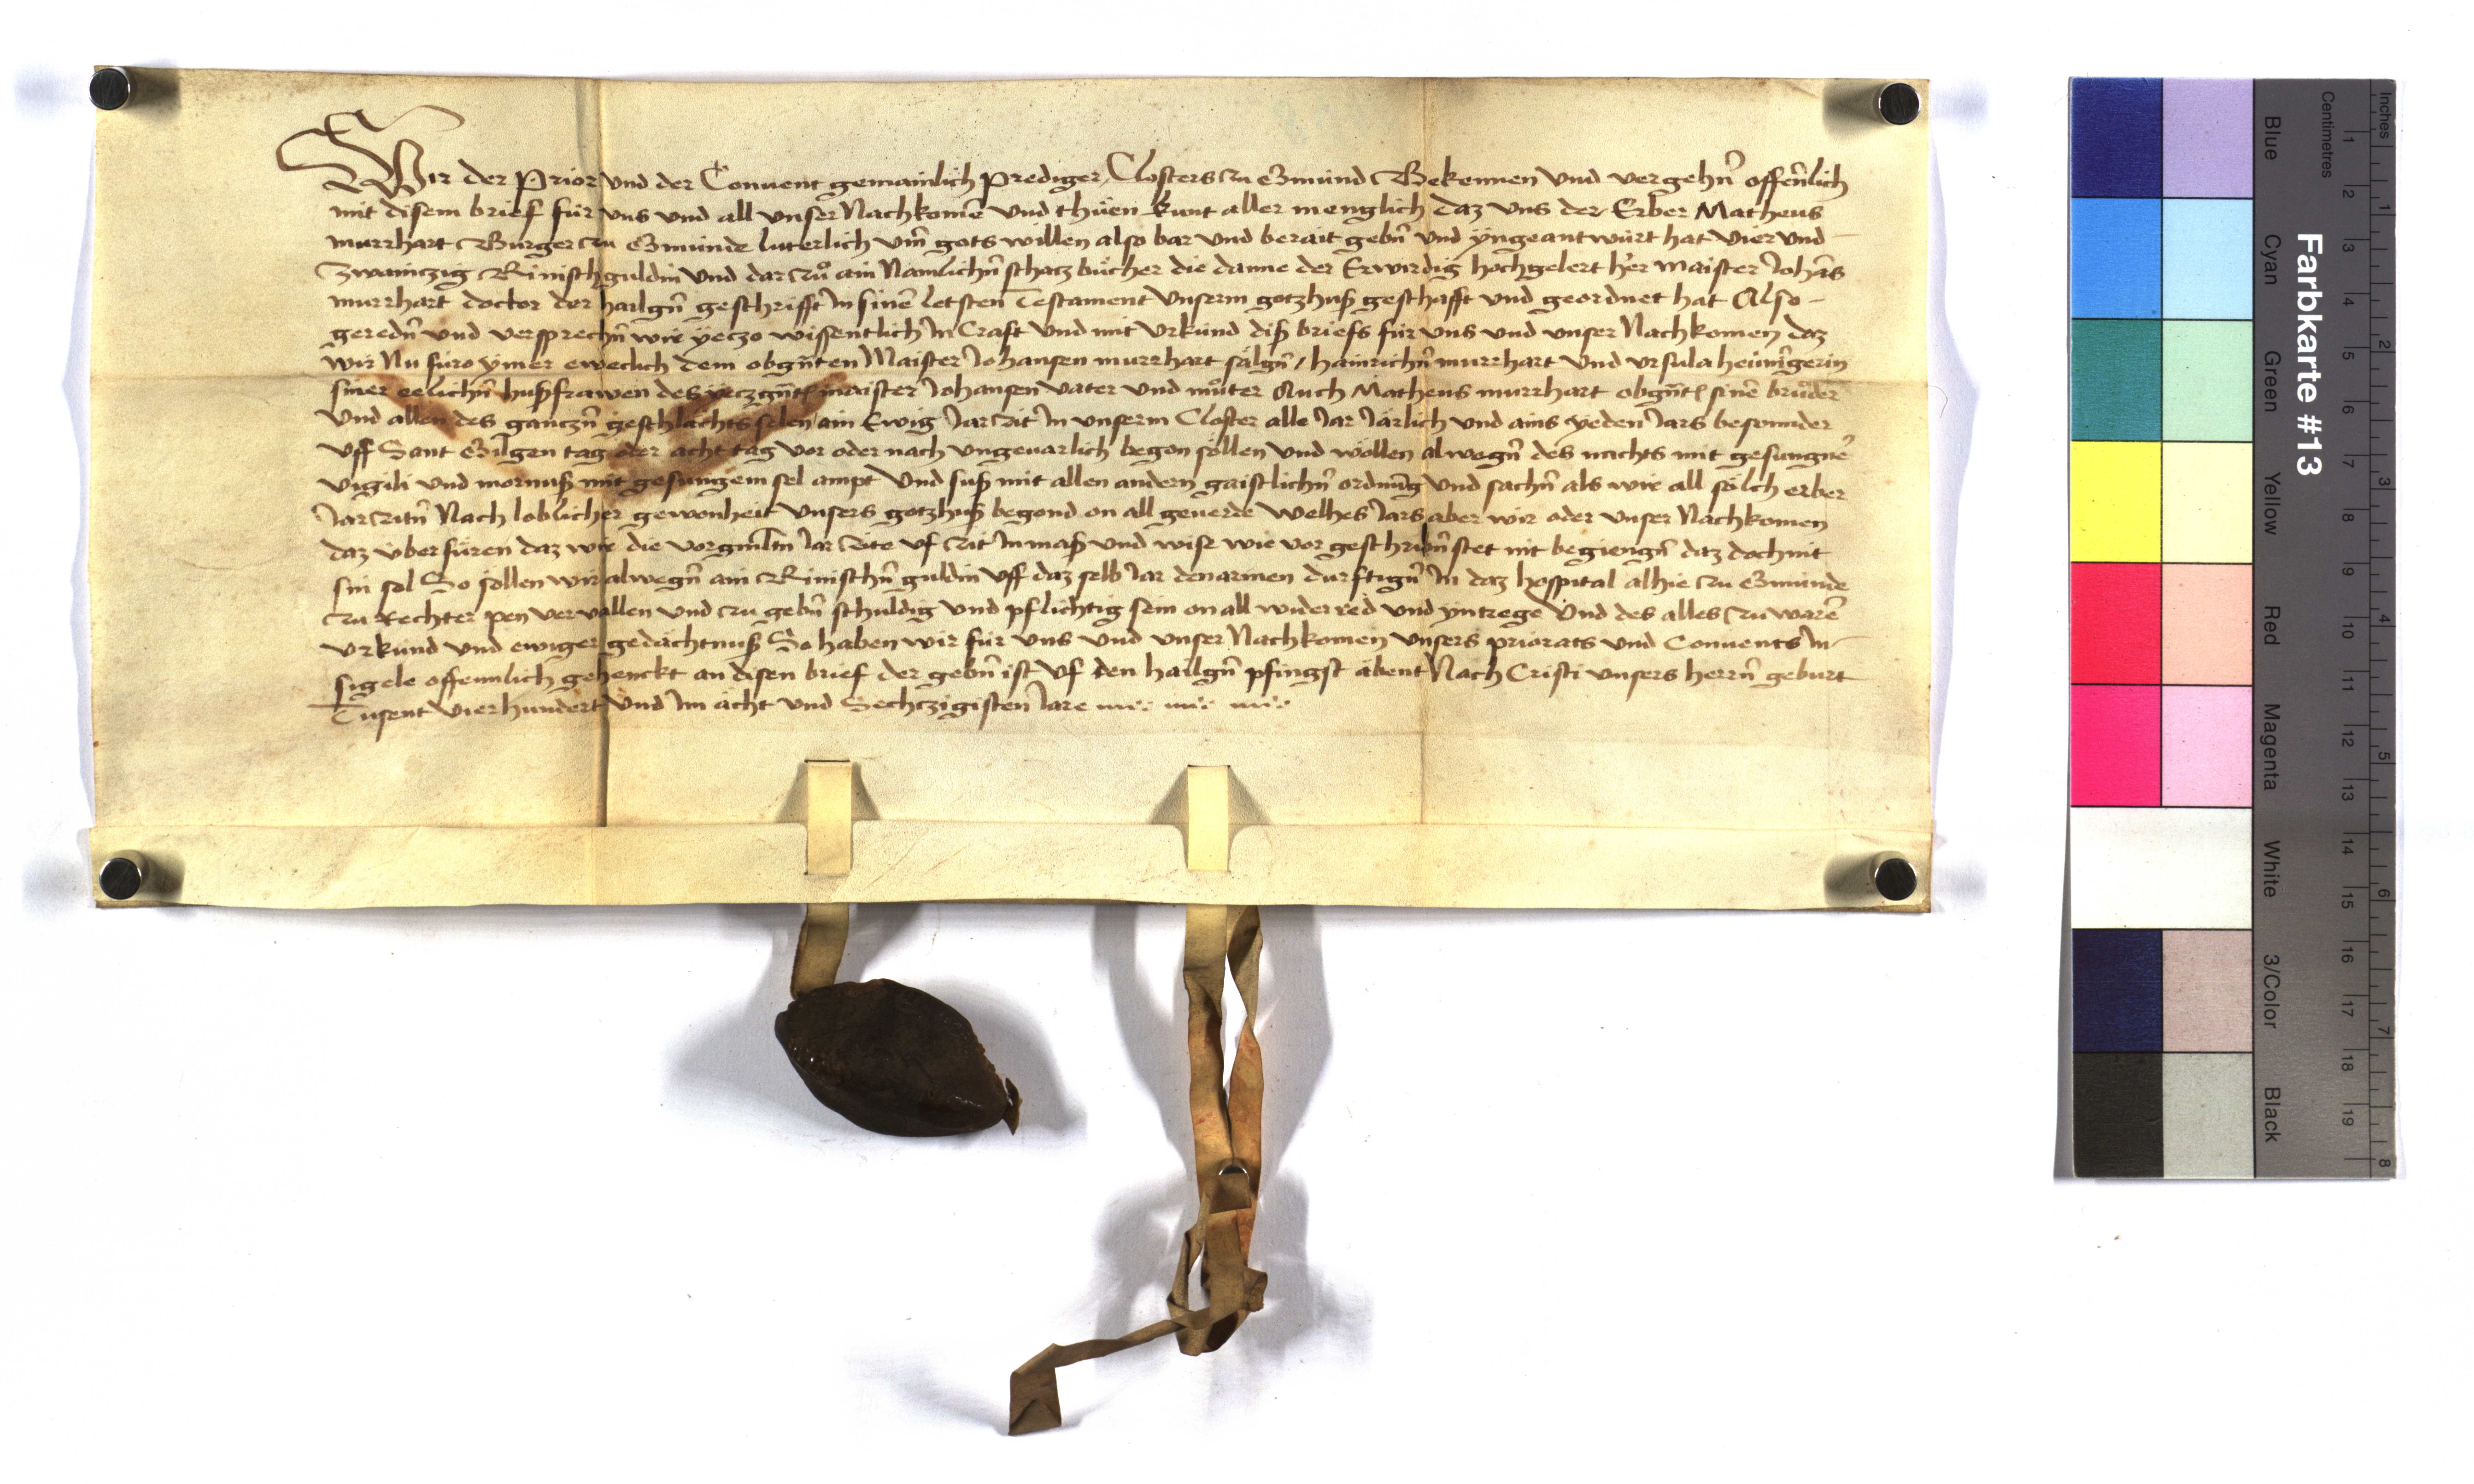 Wir der Prior und der Conuent gemainlich prediger Closters zu Gmünd Bekennen Und vergehn̄ offenn̄lich
mit disem brief für uns und all unser Nachkomē Und thüen kunt aller menglich daz uns der Erber Matheus
murrhart Burger zu Gmünde luterlich um̄ gots willen also bar und berait gebn̄ und yngeantwürt hat Vier und
Zwainczig Rinisch guldin Und dar zů ain Namlichn̄ schacz bücher die danne der Erwirdig hochgelert her maister Johās
murrhart doctor der hailgn̄ geschrifft In sinē letsten Testament Unserm gotzhuß geschafft und geordnet hat Also
geredn̄ und versprechn̄ wir yeczo wissentlich In Craft Und mit Urkünd diß briefs für uns und unser Nachkomen daz
wir Nu füro ymer eweclich dem obgn̄ten Maister Johansen murrhart sälgn̄ / hainrichn̄ murrhart Und Ursula
siner eelichn̄ hußfrawen des yeczgn̄tē maister Johansen Vater Und můter Auch Matheus murrhart obgn̄tē sinē brůder
Und allen des ganczn̄ geschlächts selen ain Ewig Jarzit In unserm Closter alle Jar Järlich und ains yeden Jars besonnder
Uff Sant Gilgen tag oder acht tag vor oder nach ungeuarlich begon söllen Und wöllen alwegn̄ des nachts mit gesungnē
Vigili Und mornuß mit gesungem sel ampt Und suß mit allen andern gaistlichn̄ ordnūg Und sachn̄ als wir all sölch erber
Jarzitn̄ Nach loblicher gewonheit Unsers gotzhuß begond on all geuerde Welhes Jars aber wir oder Unser Nachkomen
daz über füren daz wir die vorgm̄ltn̄ Jar Zite uf zit In maß und wise wie vor geschribn̄ stet nit begiengn̄ daz doch nit
sin sol So söllen wir alwegn̄ ain Rinischn̄ guldin Uff daz selb Jar den armen durftign̄ In daz hospital alhie zu Gmünde
zu Rechter pen vervallen und zu gebn̄ schuldig und pflichtig sein on all widerred und yntrege Und des alles zu warē
Urkünd und ewiger gedächtnuß So haben wir für uns Und unser Nachkomen Unsers priorats und Conuents In
sigele offennlich gehenckt an disen brief der gebn̄ ist Uf den hailgn̄ pfingst abent Nach Cristi unsers herrn̄ geburt
Tusent Vierhundert Und Im ächt und Sechczigisten Jare
Farbkarte #13
Inches 1 2 3 4 5 6 7 8
Centimetres 1 2 3 4 5 6 7 8 9 10 11 12 13 14 15 16 17 18 19
Blue Cyan Green Yellow Red Magenta White 3/Color Black